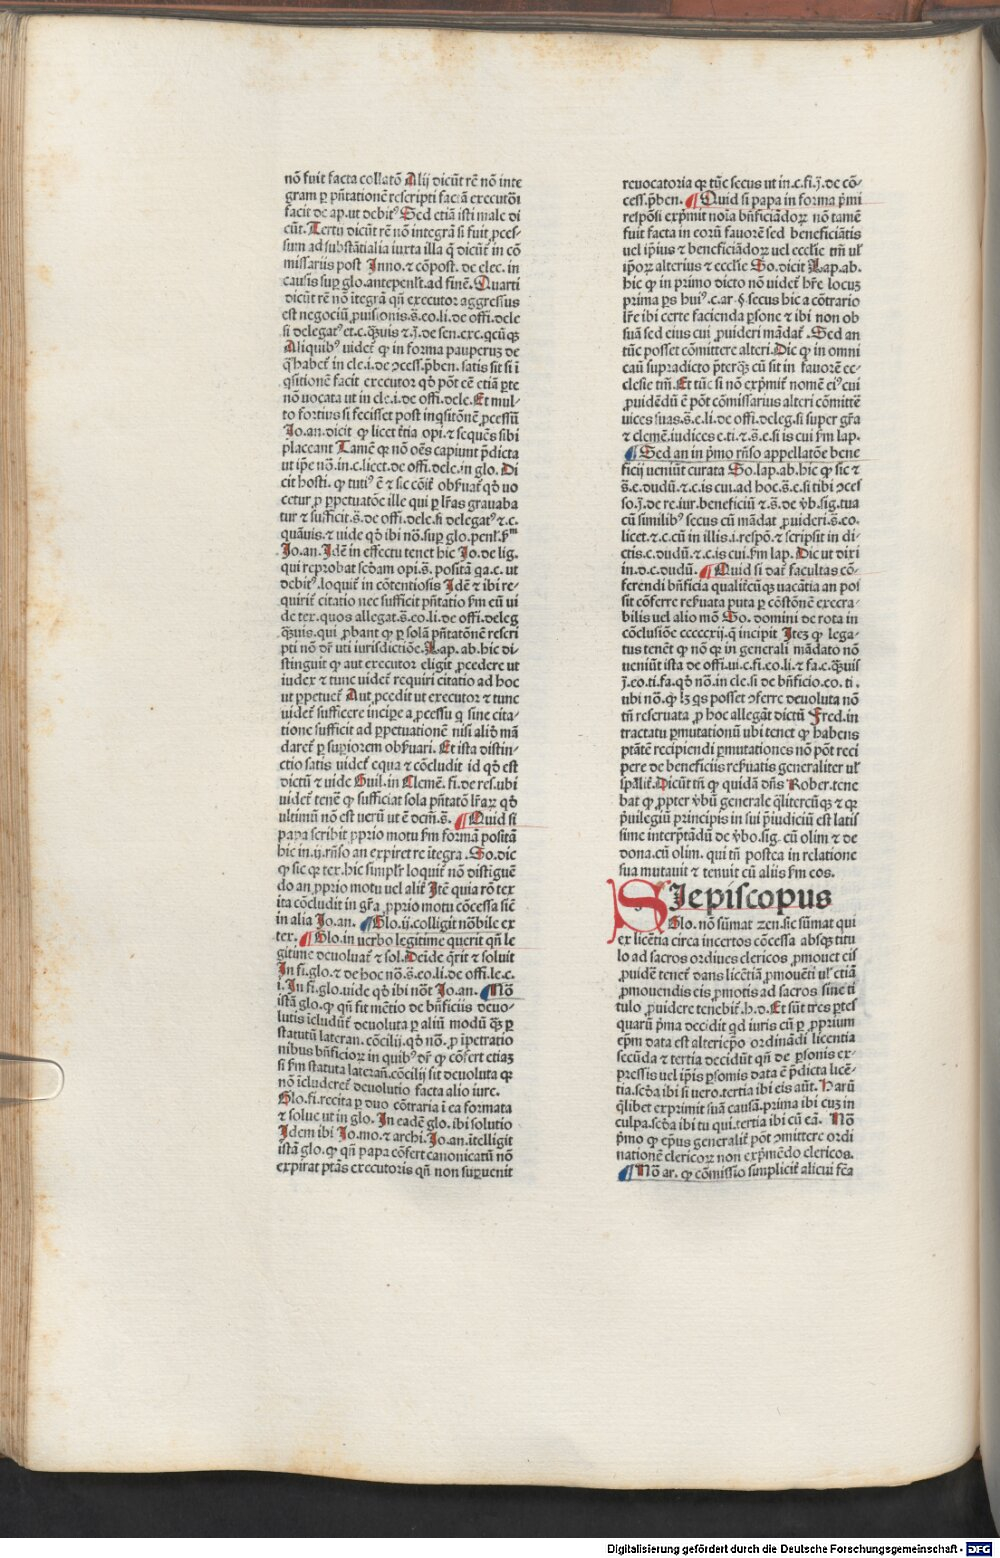 nō fuit facta collatō Alij dicūt rē nō inte
gram ꝑ pn̄tationē rescripti factā executoī
facit de ap. ut debitꝰ Sed etiā isti male di
cūt. Tertij dicūt rē nō integrā si fuit ꝓces-
sum ad substātialia iuxta illa q̄ dicūt in cō
missariis post Inno. ⁊ cōpost. de elec. in
causis sup̱ glo. antepenlt̄. ad finē. Quarti
dicūt rē nō ītegrā qn̄ executor aggressus
est negociū ꝓuisionis. s̄. eo. li. de offi. dele
si delegatꝰ et. c. q̄uis ⁊ .j̄. de sen. exc. qcūqꝫ
Aliquibꝰ videt̄ ꝙ in forma pauperuꝫ de
q̄ habet̄ in cle. i. de ↄcess. p̄ben. satis sit si ī
q̄sitionē facit executor qd̄ pōt cē etiā ꝑte
nō vocata ut in cle. i. de offi. dele. Et mul-
to fortius si fecisset post inq̄sitōnē ꝓcessū
Jo. an. dicit ꝙ licet t̄tia opi. ⁊ sequēs sibi
placeant Tamē qꝫ nō oēs capiunt p̄dicta
ut ip̄e nō. in. c. licet. de offi. dele. in glo. Di
cit hosti. ꝙ tutiꝰ ē ⁊ sic cōit̄ obs̄uat̄ qd̄ vo
cetur ꝓ ꝑpetuatōe ille qui ꝑ lr̄as grauaba
tur ⁊ sufficit. s̄. de offi. dele. si delegatꝰ ⁊. c.
quāuis. ⁊ vide qd̄ ibi nō. sup̱ glo. penlt̄. ẜm
Jo. an. Idē in effectu tenet hic Jo. de lig.
qui reprobat sc̄dam opi. s̄. positā qa. c. ut
debitꝰ. loquit̄ in cōtentiosis Idē ⁊ ibi re-
quirit̄ citatio nec sufficit pn̄tatio ẜm eū vi
de tex. quos allegat. s̄. eo. li. de offi. deleg
q̄uis. qui ꝓbant ꝙ ꝑ solā pn̄tatōnē rescri
pti nō dr̄ uti iurisdictiōe. Lap. ab. hic di-
stinguit ꝙ aut executor eligit ꝓcedere ut
iudex ⁊ tunc videt̄ requiri citatio ad hoc
ut ꝑpetuet̄ Aut ꝓcedit ut executor ⁊ tunc
videt̄ sufficere incipe a ꝓcessu q sine cita-
tione sufficit ad ꝑpetuationē nisi aliud mā
daret̄ ꝑ sup̱iorem obs̄uari. Et ista distin-
ctio satis videt̄ equa ⁊ cōcludit id qd̄ est
dictū ⁊ vide Guil. in Clemē. fi. de res. ubi
videt̄ tenē ꝙ sufficiat sola pn̄tatō lr̄aꝝ qd̄
ultimū nō est verū ut ē dcm̄. s̄. ¶ Quid si
papa scribit ꝓprio motu ẜm formā positā
hic in. ij. rn̄so an expiret re ītegra. So. dic
ꝙ sic qꝫ tex. hic simplr̄ loquit̄ nō distīguē
do an ꝓprio motu vel alit̄ Itē quia rō tex
ita cōcludit in gr̄a ꝓprio motu cōcessa sic̄
in alia Jo. an. ¶ Glo. ij. colligit nōbile ex
tex. ¶ Glo. in verbo legitime querit qn̄ le
gitime deuoluat̄ ⁊ sol. Deīde q̄rit ⁊ soluit
In fi. glo. ⁊ de hoc nō. s̄. eo. li. de offi. le. c.
i. In fi. glo. vide qd̄ ibi nōt̄ Jo. an. ¶ Nō
istā glo. ꝙ qn̄ fit mētio de bn̄ficiis deuo-
lutis īcludūt̄ deuoluta ꝑ aliū modū q̄ꝫ ꝑ
statutū lateran. cōcilij. qd̄ nō. ꝓ īpetratio
nibus bn̄ficioꝝ in quibꝰ dr̄ ꝙ cōfert etiaꝫ
si ẜm statuta laterañ. cōcilij sit deuoluta qꝫ
nō īcluderet̄ deuolutio facta alio iure.
Glo. fi. recita ꝑ duo cōtraria ī ea formata
⁊ solue ut in glo. In eadē glo. ibi solutio
Idem ibi Jo. mo. ⁊ archi. Jo. an. ītelligit
istā glo. ꝙ qn̄ papa cōfert canonicatū nō
expirat ptās executoris qn̄ non sup̱uenit
reuocatoria qꝫ tūc secus ut in. c. fi. j̄. de cō-
cess. p̄ben. ¶ Quid si papa in forma p̄mi
respōsi exp̄mit noīa bn̄ficiādoꝝ nō tamē
fuit facta in eorū fauorē sed beneficiātis
vel ip̄ius ⁊ beneficiādoꝝ vel ecclīe tm̄ vl̄
ip̄oꝝ alterius ⁊ ecclīe So. dicit Lap. ab.
hic ꝙ in primo dicto nō videt̄ hr̄e locuꝫ
prima ꝑs huiꝰ. c. ar. § secus hic a cōtrario
lr̄e ibi certe facienda ꝑsone ⁊ ibi non ob
suā sed eius cui ꝓuideri mādat̄. Sed an
tūc posset cōmittere alteri. Dic ꝙ in omni
caū supradicto p̄terq̄ꝫ cū sit in fauorē ec-
clesie tm̄. Et tūc si nō exp̄mit̄ nomē eiꝰ cui
ꝓuidēdū ē pōt cōmissarius alteri cōmittē
vices suas. s̄. e. li. de offi. deleg. si super gr̄a
⁊ clemē. iudices e. ti. ⁊. s̄. e. si is cui ẜm lap.
¶ Sed an in p̄mo rn̄so appellatōe bene
ficij veniūt curata So. lap. ab. hic ꝙ sic ⁊
s̄. e. dudū. ⁊. c. is cui. ad hoc. s̄. e. si tibi ↄces
so. j̄. de re. iur. beneficiū ⁊. s̄. de v̄b. sig. tua
cū similibꝰ secus cū mādat̄ ꝓuideri. s̄. eo.
licet. ⁊. c. cū in illis. i. respō. ⁊ scripsit in di-
ctis. c. dudū. ⁊. c. is cui. ẜm lap. Dic ut dixi
in. d. c. dudū. ¶ Quid si dat̄ facultas cō-
ferendi bn̄ficia qualit̄cūqꝫ vacātia an pos
sit cōferre res̄uata puta ꝑ cōstōnē execra-
bilis vel alio mō So. domini de rota in
cōclusiōe cccccxij. q̄ incipit Iteꝫ ꝙ lega-
tus tenet̄ ꝙ nō qꝫ in generali mādato nō
veniūt ista de offi. vi. c. fi. eo. li. ⁊ fa. c. q̄uis
j̄. eo. ti. fa. qd̄ nō. in cle. si de bn̄ficio. eo. ti.
ubi nō. ꝙ lꝫ qs posset ↄferre deuoluta nō
tn̄ reseruata ꝓ hoc allegāt dictū Fred. in
tractatu ꝑmutationū ubi tenet ꝙ habens
ptātē recipiendi ꝑmutationes nō pōt reci
pere de beneficiis res̄uatis generaliter vl̄
sp̄alit̄. Dicūt tn̄ ꝙ quidā dn̄s Rober. tene
bat ꝙ ꝓpter v̄bū generale q̄litercūqꝫ ⁊ qꝫ
p̄uilegiū principis in sui p̄iudiciū est latis
sime interp̄tādū de v̄bo. sig. cū olim ⁊ de
dona. cū olim. qui tn̄ postea in relatione
sua mutauit ⁊ tenuit cū aliis ẜm eos.
SI episcopus
Glo. nō sūmat zen. sic sūmat qui
ex licētia circa incertos cōcessa absqꝫ titu
lo ad sacros ordines clericos ꝓmouet eis
ꝓuidē tenet̄ dans licētiā ꝓmouēti vl̄ etiā
ꝓmouendis eis ꝓmotis ad sacros sine ti
tulo ꝓuidere tenebit̄. h. d. Et sūt tres ꝑtes
quarū p̄ma decidit qd iuris cū ꝑ ꝓprium
ep̄m data est alteri ep̄o ordinādi licentia
secūda ⁊ tertia decidūt qn̄ de ꝑsonis ex-
pressis vel ip̄is ꝑsonis data ē p̄dicta licē-
tia. sc̄da ibi si vero. tertia ibi eis aūt. Harū
q̄libet exprimit suā causā. prima ibi cuꝫ in
culpa. sc̄da ibi tu qui. tertia ibi cū eā. Nō
p̄mo ꝙ ep̄us generalit̄ pōt ↄmittere ordi
nationē clericoꝝ non exp̄mēdo clericos.
¶ Nō ar. ꝙ cōmissio simplicit̄ alicui fc̄a
Digitalisierung gefördert durch die Deutsche Forschungsgemeinschaft - DFG